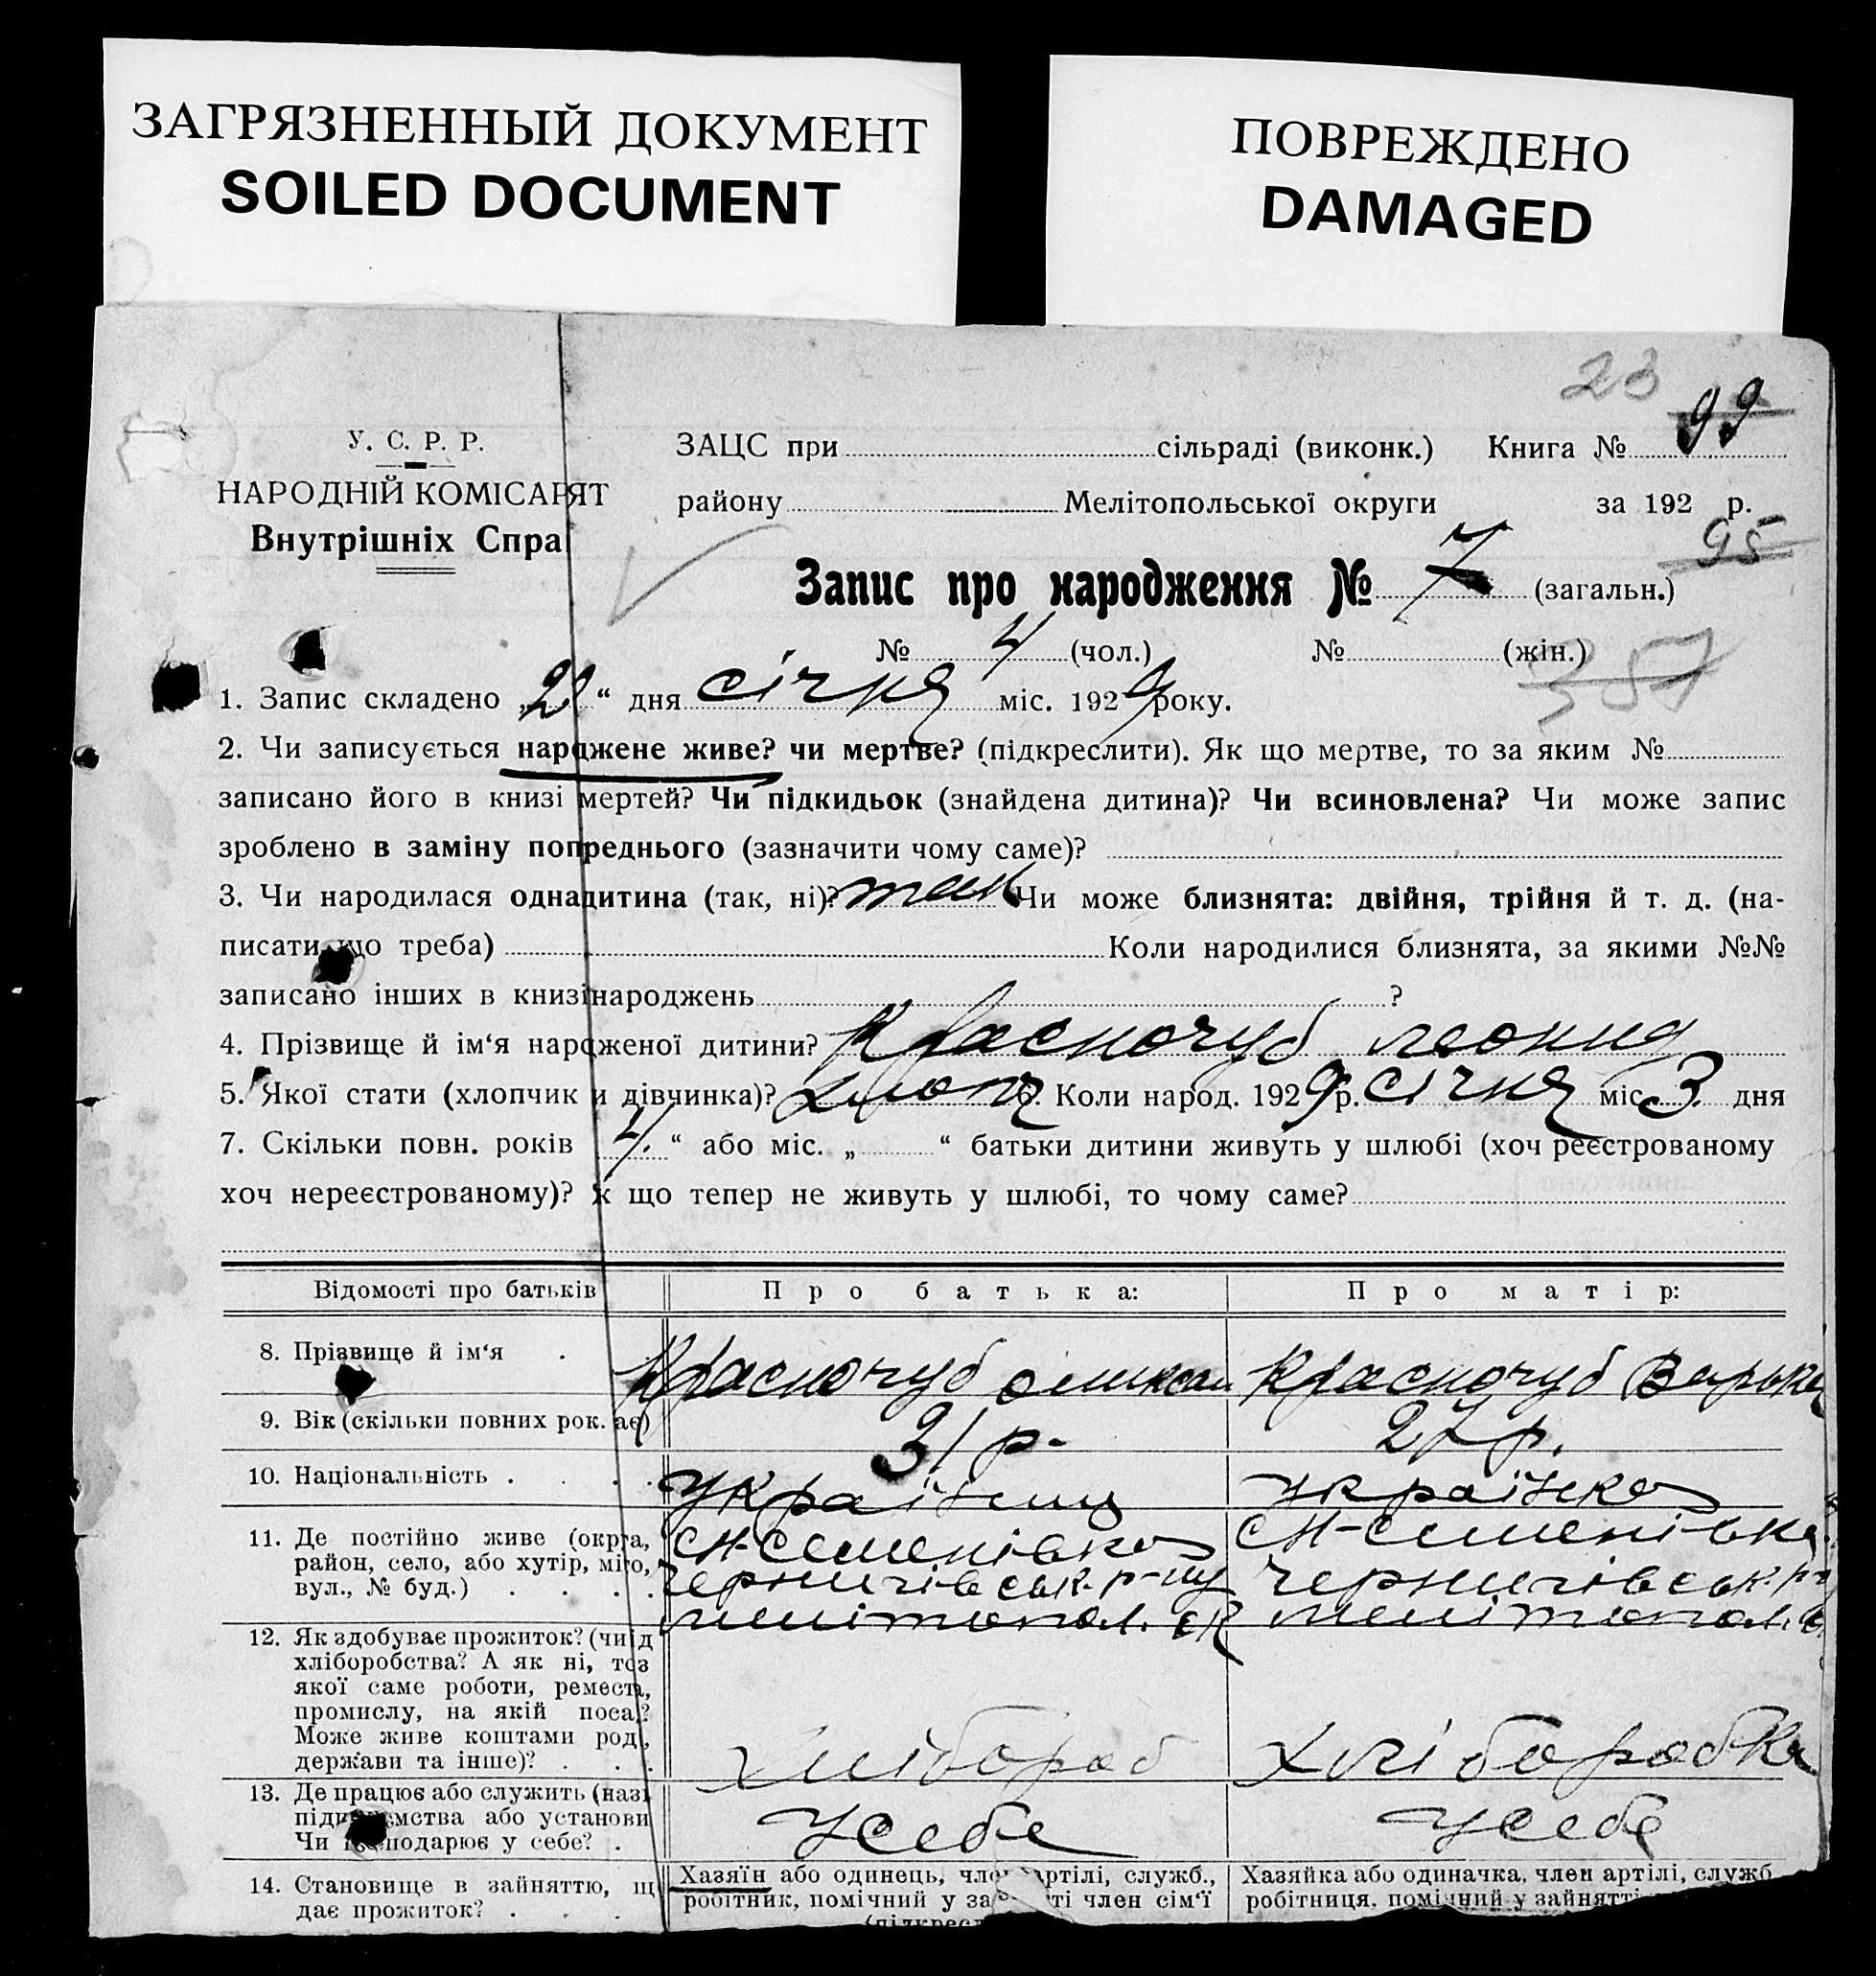 ЗАГРЯЗНЕННЫЙ ДОКУМЕНТ
SOILED DOCUMENT
ПОВРЕЖДЕНО
DAMAGED
23
99
У. С. Р. Р.
НАРОДНІЙ КОМІСАРЯТ
Внутрішніх Спра
ЗАЦС при сільраді (виконк.) Книга №
району Мелітопольської округи за 192 р.
95
Запис про народження № 7 (загальн.)
№ 4 (чол.) № (жін.)
357
1. Запис складено „22“ дня січня міс. 1929 року.
2. Чи записується нарджене живе? чи мертве? (підкреслити). Як що мертве, то за яким №
записано його в книзі мертей? Чи підкидьок (знайдена дитина)? Чи всиновлена? Чи може запис
зроблено в заміну попреднього (зазначити чому саме)?
3. Чи народилася одна дитина (так, ні)? так Чи може близнята: двійня, трійня й т. д. (на-
писати що треба) Коли народилися близнята, за якими №№
записано інших в книзі народжень ?
4. Прізвище й ім‘я нардженої дитини? Красночуб Леонид
5. Якої стати (хлопчик и дівчинка)? хлопч 6. Коли народ. 1929 р. січня міс. 3 дня
7. Скільки повн. років 4. “ або міс. „ “ батьки дитини живуть у шлюбі (хоч реєстрованому
хоч нереєстрованому)? к що тепер не живуть у шлюбі, то чому саме?
Відомості про батьків
Про батька:
Про матір:
8. Прізвище й ім‘я .
Красночуб Оликсан
Красночуб Варька
9. Вік (скільки повних рок. ає)
31 р.
27 р.
10. Національність . . . .
Українец
Українка
11. Де постійно живе (окрга,
район, село, або хутір, міто,
вул., № буд.) . . . .
СН-Семенівка
Чернигівськ. р-ну
Мелітопол. ок
СН-Семенівка
Чернигівськ. р-
Мелітопол. о
12. Як здобуває прожиток? (чи ід
хліборобства? А як ні, тоз
якої саме роботи, реместа,
промислу, на якій поса?
Може живе коштами род,
держави та інше)? . . .
хлібороб
хліборобка
13. Де працює або служить (наз
підпмства або установи
Чи гсподарює у себе? .
У себе
У себе
14. Становище в зайняттю, щ
дає прожиток? . . .
Хазяїн або одинець, член артілі, служб.,
робітник, помічний у за ті член сім‘ї
Хазяйка або одиначка, член артілі, служб
робітниця, помічний у зайнятті